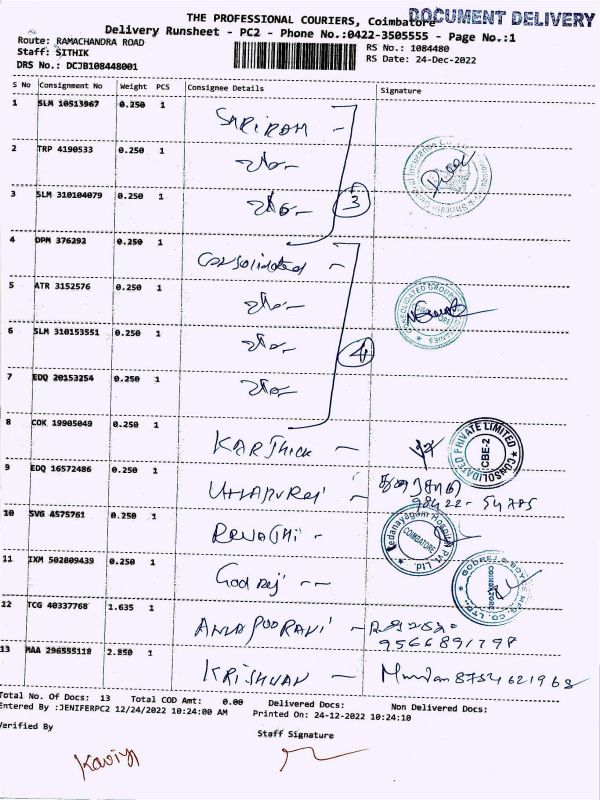 THE PROFESSIONAL COURIERS, Coimbatore
DOCUMENT DELIVERY
Delivery Runsheet - PC2 - Phone No.:0422-3505555 - Page No.:1
Route: RAMACHANDRA ROAD
Staff: SITHIK
DRS No.: DCJB108448001
RS No.: 1084480
RS Date: 24-Dec-2022
S No Consignment No Weight PCS Consignee Details Signature
1 SLM 10513967 0.250 1
SHRIRAM -
2 TRP 4190533 0.250 1
3 SLM 310104079 0.250 1
3
4 DPM 376292 0.250 1
Consolidated -
5 ATR 3152576 0.250 1
CONSOLIDATED GROUP
6 SLM 310153551 0.250 1
4
7 EDQ 20153254 0.250 1
8 COK 19905049 0.250 1
KARTHICK -
CONSOLIDATED PRIVATE LIMITED
CBE-2
9 EDQ 16572486 0.250 1
98422-54785
10 SVG 4575761 0.250 1
REVATHI -
COIMBATORE
Pvt. Ltd.
11 IXM 502809439 0.250 1
Godrej --
12 TCG 40337768 1.635 1
9566891798
13 MAA 296595118 2.850 1
KRISHNAN - 8754621968
Total No. Of Docs: 13 Total COD Amt: 0.00 Delivered Docs: Non Delivered Docs:
Entered By :JENIFERPC2 12/24/2022 10:24:00 AM Printed On: 24-12-2022 10:24:10
Verified By Staff Signature
Kaviya